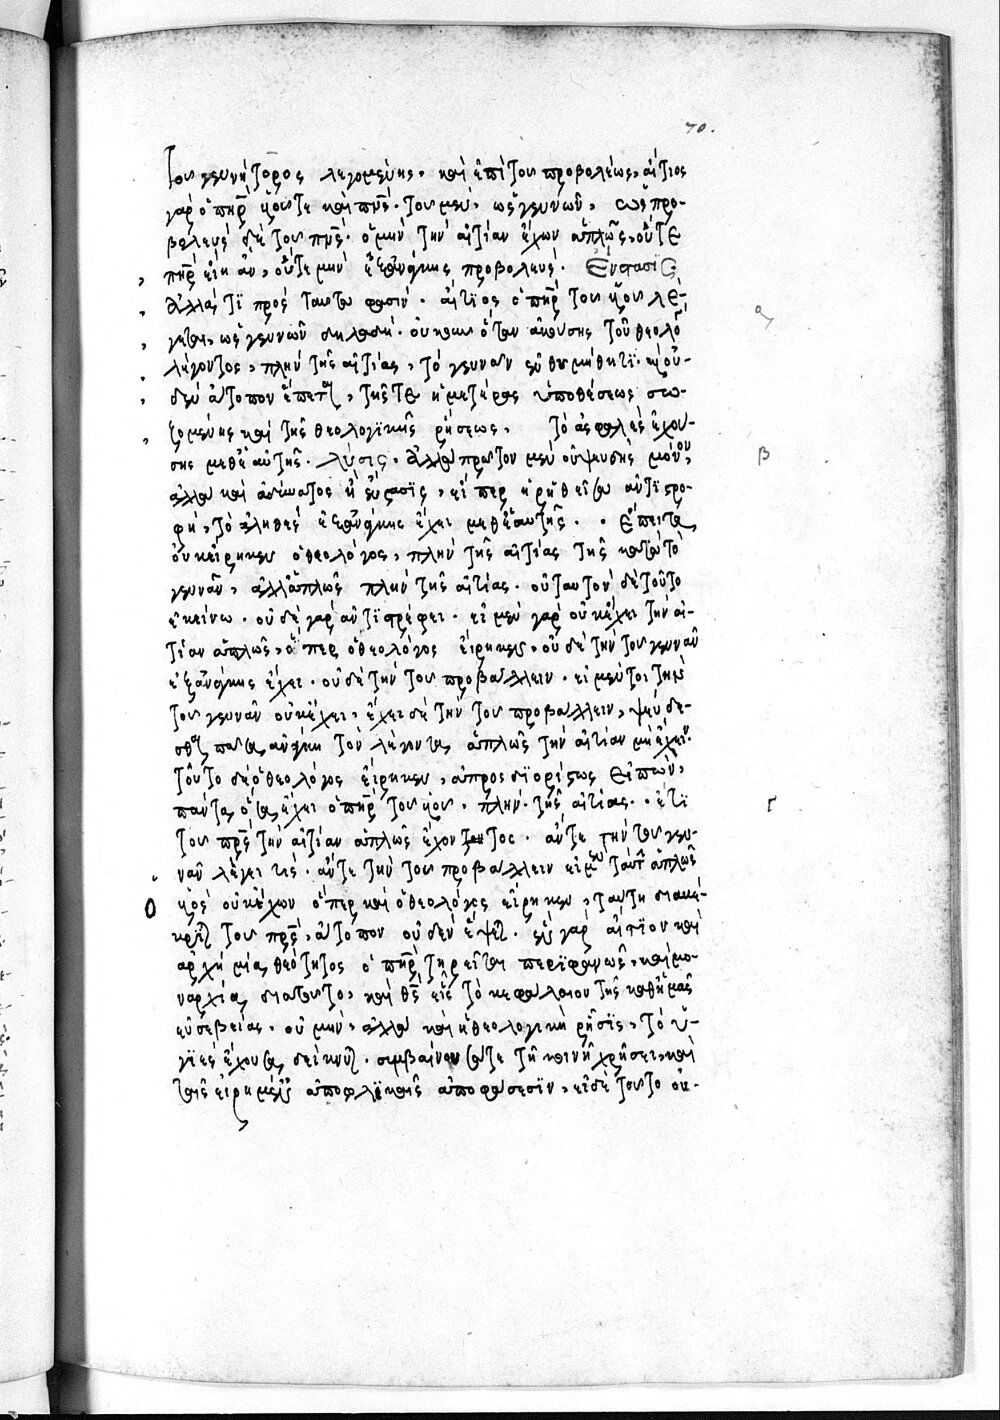 70.
τοῦ γεννήτορος λεγομένης, καὶ ἐπὶ τοῦ προβολέως, αἴτιος
γὰρ ὁ πηρ υἱοῦ τε καὶ πνς. τοῦ μὲν, ὡς γεννῶν, ὡς προ-
βολεὺς δὲ τοῦ πνς. ὁ μὴν τὴν αἰτίαν ἔχων ἁπλῶς, οὔτε
πηρ εἴη ἂν, οὔτε μὴν ἐξανάγκης προβολεύς. Ἔνστασις
Ἀλλά τι πρὸς ταῦτα φασίν. αἴτιος ὁ πηρ τοῦ υἱοῦ λέ-
γεται, ὡς γεννῶν δηλαδή. οὐκοῦν ὅταν ἀκούσης τοῦ θεολό
λέγοντος, πλὴν τῆς αἰτίας, τὸ γεννᾶν ἐνθυμήθητι. καὶ οὐ-
δὲν ἄτοπον ἕπεται, τῆς τε ἡμετέρας ὑποθέσεως σω-
ζομένης καὶ τῆς θεολογικῆς ῥήσεως, τὸ ἀσφαλὲς ἐχού-
σης μεθ' ἑαυτῆς. λύσις. Ἀλλὰ πρῶτον μὲν οὐ ψευδὴς μόνον,
ἀλλὰ καὶ ἀδύνατος ἡ ἔνστασις, εἴπερ ἡ ῥηθεῖσα ἀντιστρο-
φὴ, τὸ ἀληθὲς ἐξανάγκης ἔχει μεθ' ἑαυτῆς. Ἔπειτα,
οὐκ εἴρηκεν ὁ θεολόγος, πλὴν τῆς αἰτίας τῆς κατὰ τὸ
γεννᾶν, ἀλλ' ἁπλῶς πλὴν τῆς αἰτίας. οὐ ταυτὸν δὲ τοῦτο
ἐκείνω. οὐδὲ γὰρ ἀντιστρέφει. εἰ μὲν γὰρ οὐκ ἔχει τὴν αἰ-
τίαν ἁπλῶς, ὅπερ ὁ θεολόγος εἴρηκεν, οὐδὲ τὴν τοῦ γεννᾶν
ἐξανάγκης ἔχει. οὐδὲ τὴν τοῦ προβάλλειν. εἰ μέντοι τὴν
τοῦ γεννᾶν οὐκ ἔχει, ἔχει δὲ τὴν τοῦ προβάλλειν, ψεύδε-
σθαι πᾶσα ἀνάγκη τὸν λέγοντα ἁπλῶς τὴν αἰτίαν μὴ ἔχειν.
τοῦτο δὲ ὁ θεολόγος εἴρηκεν, ἀπροσδιορίστως εἰπών,
πάντα ὅσα ἔχει ὁ πηρ τοῦ υἱοῦ, πλὴν τῆς αἰτίας. ἔτι
τοῦ πρς τὴν αἰτίαν ἁπλῶς ἔχοντος. ἄντε τὴν τοῦ γεν-
νᾶν λέγει τίς. ἄντε τὴν τοῦ προβάλλειν εἰ μὲν ταύτ ἁπλῶς
ὁ υἱὸς οὐκ ἔχων ὅπερ καὶ ὁ θεολόγος εἴρηκεν, ταύτη διακέ-
κριται τοῦ πρς, ἄτοπον οὐδὲν ἕψεται. εἷς γὰρ αἴτιον καὶ
ἀρχὴ μία θεότητος ὁ πηρ τηρεῖται περιφανῶς, καὶ μο-
ναρχία διατοῦτο, καὶ θς εἷς τὸ κεφάλαιον τῆς καθ' ἡμᾶς
εὐσεβείας. οὐ μὴν, ἀλλὰ καὶ ἡ θεολογικὴ ῥῆσις, τὸ ὑ-
γιὲς ἔχουσα δείκνυται. συμβαίνουσα τε τῆ κοινῆ χρήσει, καὶ
ταῖς εἰρημέναις ἀποφατικαῖς ἀποφάσεσιν, εἰ δὲ τοῦτο οὐ-
α
β
γ